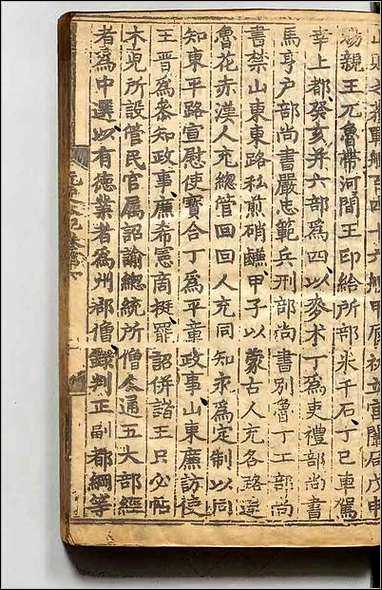 船百四十六艘甲辰初立宮闈局戊申
賜親王兀魯帶河間王印給所部米千石丁巳車駕
幸上都癸亥并六部為四以麥术丁為吏禮部尚書
馬亨戶部尚書嚴忠範兵刑部尚書別魯丁工部尚
書禁山東東路私煎硝鹻甲子以蒙古人充各路達
魯花赤漢人充總管回回人充同知永為定制以同
知東平路宣慰使寶合丁為平章政事山東廉訪使
王晋為參知政事廉希憲商挺罷詔併諸王只必帖
木兒所設管民官屬詔諭總統所僧人通五大部經
者為中選以有德業者為州郡僧錄判正副都綱等